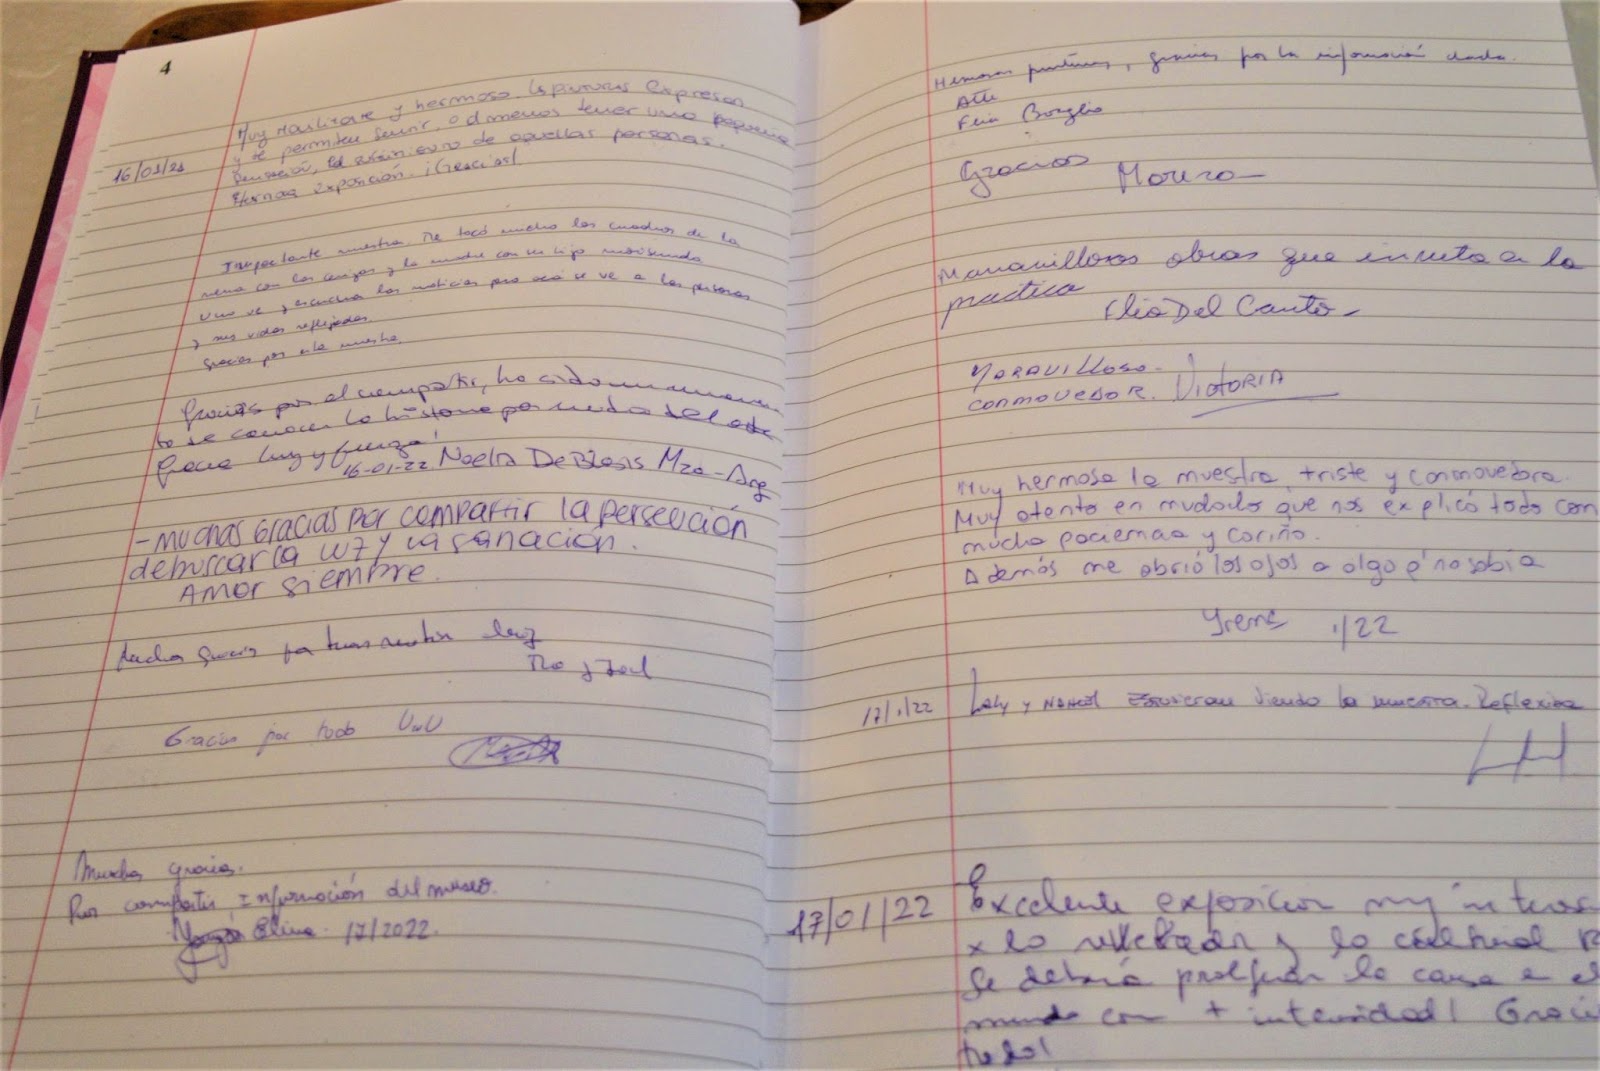 4
16/01/22
Muy movilizante y hermoso, las pinturas expresan
y te permiten sentir, o al menos tener una pequeña
sensación, el sufrimiento de aquellas personas.
exposición. ¡Gracias!
Importante muestra. Me tocó mucho los cuadros de la
nena con los amigos y la madre con su hijo
Uno ve y escucha las noticias pero acá se ve a las personas
y sus vidas reflejadas
Gracias por esta muestra.
Gracias por el compartir, ha sido un momen
to de conocer la historia por medio del arte
Gracia luz y fuerza!
16-01-22 Noelia De Blasis Mza-Arg
- Muchas Gracias por compartir la persecución
de buscar la luz y la sanación.
Amor siempre.
Mucha gracia por transmitir luz
Gracias por todo UwU
Muchas gracias.
Por compartir Información del museo.
Elina. 17/2022.
Hermosas pinturas, gracias por la información dada.
Atte
Flia Borglio
Gracias Morera
Maravillosas obras que invita a la
practica
Flia Del Canto
MARAVILLOSO.
CONMOVEDOR. VICTORIA
Muy hermosa la muestra, triste y conmovedora.
Muy atento en mudado que nos explicó todo con
mucha paciencia y cariño.
Además me abrió los ojos a algo q' no sabía
Irene 1/22
17/1/22 Laly y Nahuel Estuvieron viendo la muestra. Reflexiva
17/01/22 Excelente exposición muy interes
x lo y lo cultural
Se debería la causa en el
mundo con + intensidad! Graci
todo!